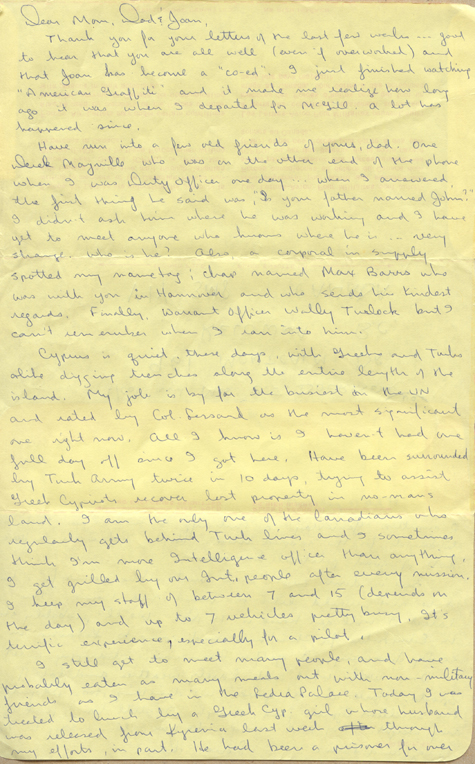 Dear Mom, Dad & Joan,
Thank you for your letters of the last few weeks ... good
to hear that you are all well (even if overworked) and
that Joan has become a "co-ed". I just finished watching
"American Graffiti" and it made me realize how long
ago it was when I departed for McGill. A lot has
happened since.
Have run into a few old friends of yours, dad. One
Derek who was on the other end of the phone
when I was Duty Officer one day ... when I answered
the first thing he said was "Is your father named John?"
I didn't ask him where he was working and I have
yet to meet anyone who knows where he is ... very
strange. Who is he? Also, a corporal in supply
spotted my nametag; chap named Max Barrs who
was with you in Hannover and who sends his kindest
regards. Finally, Warrant Officer Wally but I
can't remember when I ran into him.
Cyprus is quiet, these days, with Greeks and Turks
alike digging trenches along the entire length of the
island. My job is by far the busiest on the UN
and rated by Col as the most significant
one right now. All I know is I haven't had one
full day off since I got here. Have been surrounded
by Turk Army twice in 10 days, trying to assist
Greek Cypriots recover lost property in no-mans
land. I am the only one of the Canadians who
regularly gets behind Turk lines and I sometimes
think I'm more Intelligence officer than anything.
I get grilled by our Int. people after every mission.
I keep my staff of between 7 and 15 (depends on
the day) and up to 7 vehicles pretty busy. It's
terrific experience, especially for a pilot.
I still get to meet many people, and have
probably eaten as many meals out with non-military
friends as I have in the Ledra Palace. Today I was
treated to lunch by a Greek Cyp. girl whose husband
was released from Kyrenia last week through
my efforts, in part. He had been a prisoner for over